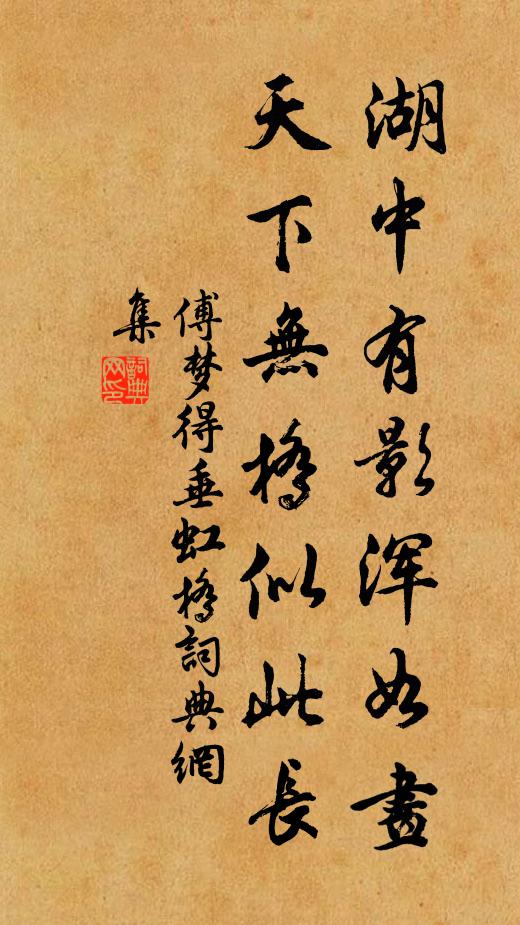 湖中有影渾如畫
天下無橋似此長
傅梦得垂虹橋詞典網
集
詞典
网印